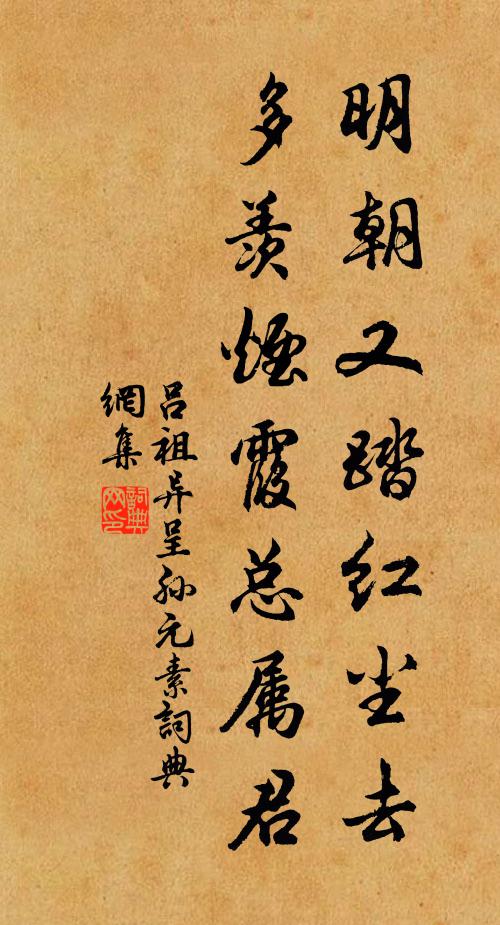 明朝又踏红尘去
多羡烟霞总属君
吕祖并呈孙元素詞典
網集
詞典
网印